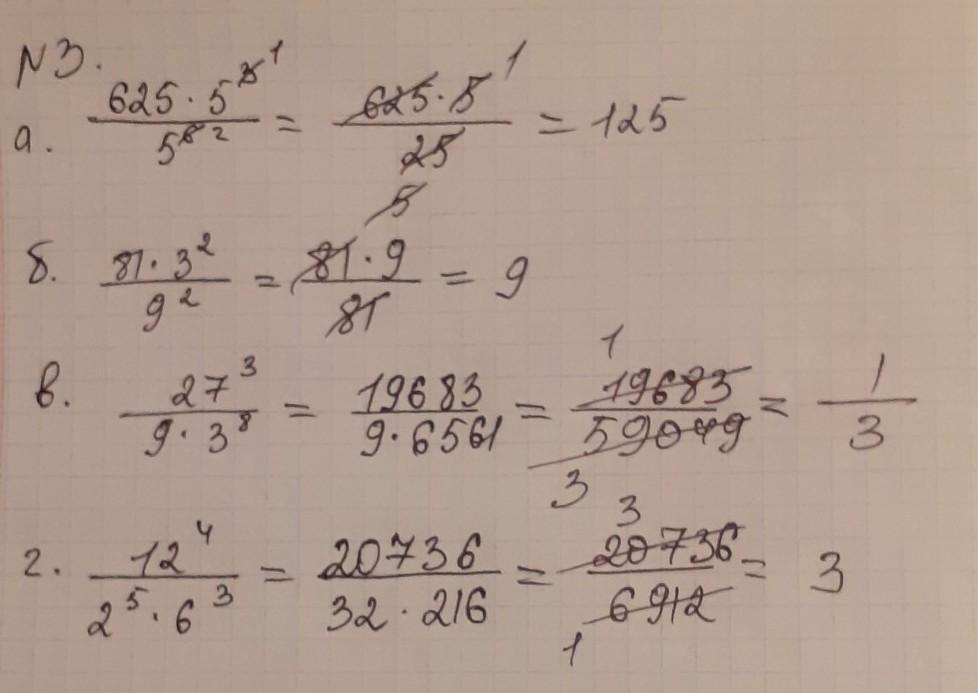 №3.
а. 625 · 5^3 1 / 5^8 2 = 625 · 5 1 / 25 5 = 125
б. 81 · 3^2 / 9^2 = 81 · 9 / 81 = 9
в. 27^3 / 9 · 3^8 = 19683 / 9 · 6561 = 1 19683 / 59049 3 = 1 / 3
г. 12^4 / 2^5 · 6^3 = 20736 / 32 · 216 = 3 20736 / 6912 1 = 3